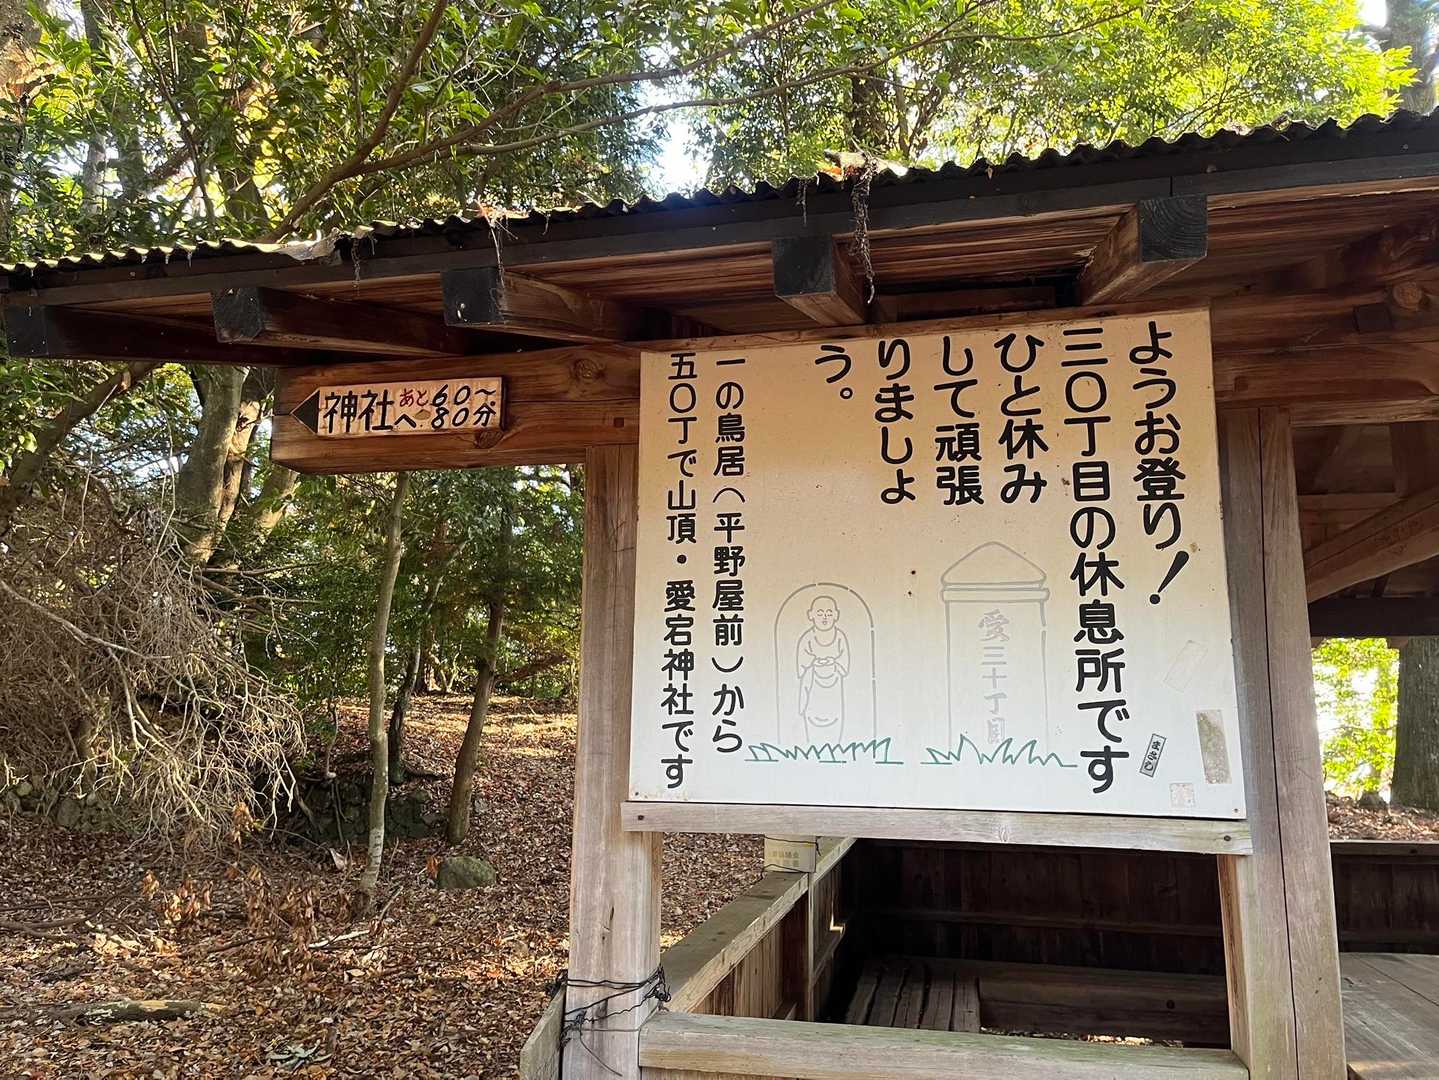 神社へ
あと60〜
80分
ようお登り!
三〇丁目の休息所です
ひと休み
して頑張
りましょ
う。
一の鳥居(平野屋前)から
五〇丁で山頂・愛宕神社です
愛三十丁目
まさむ